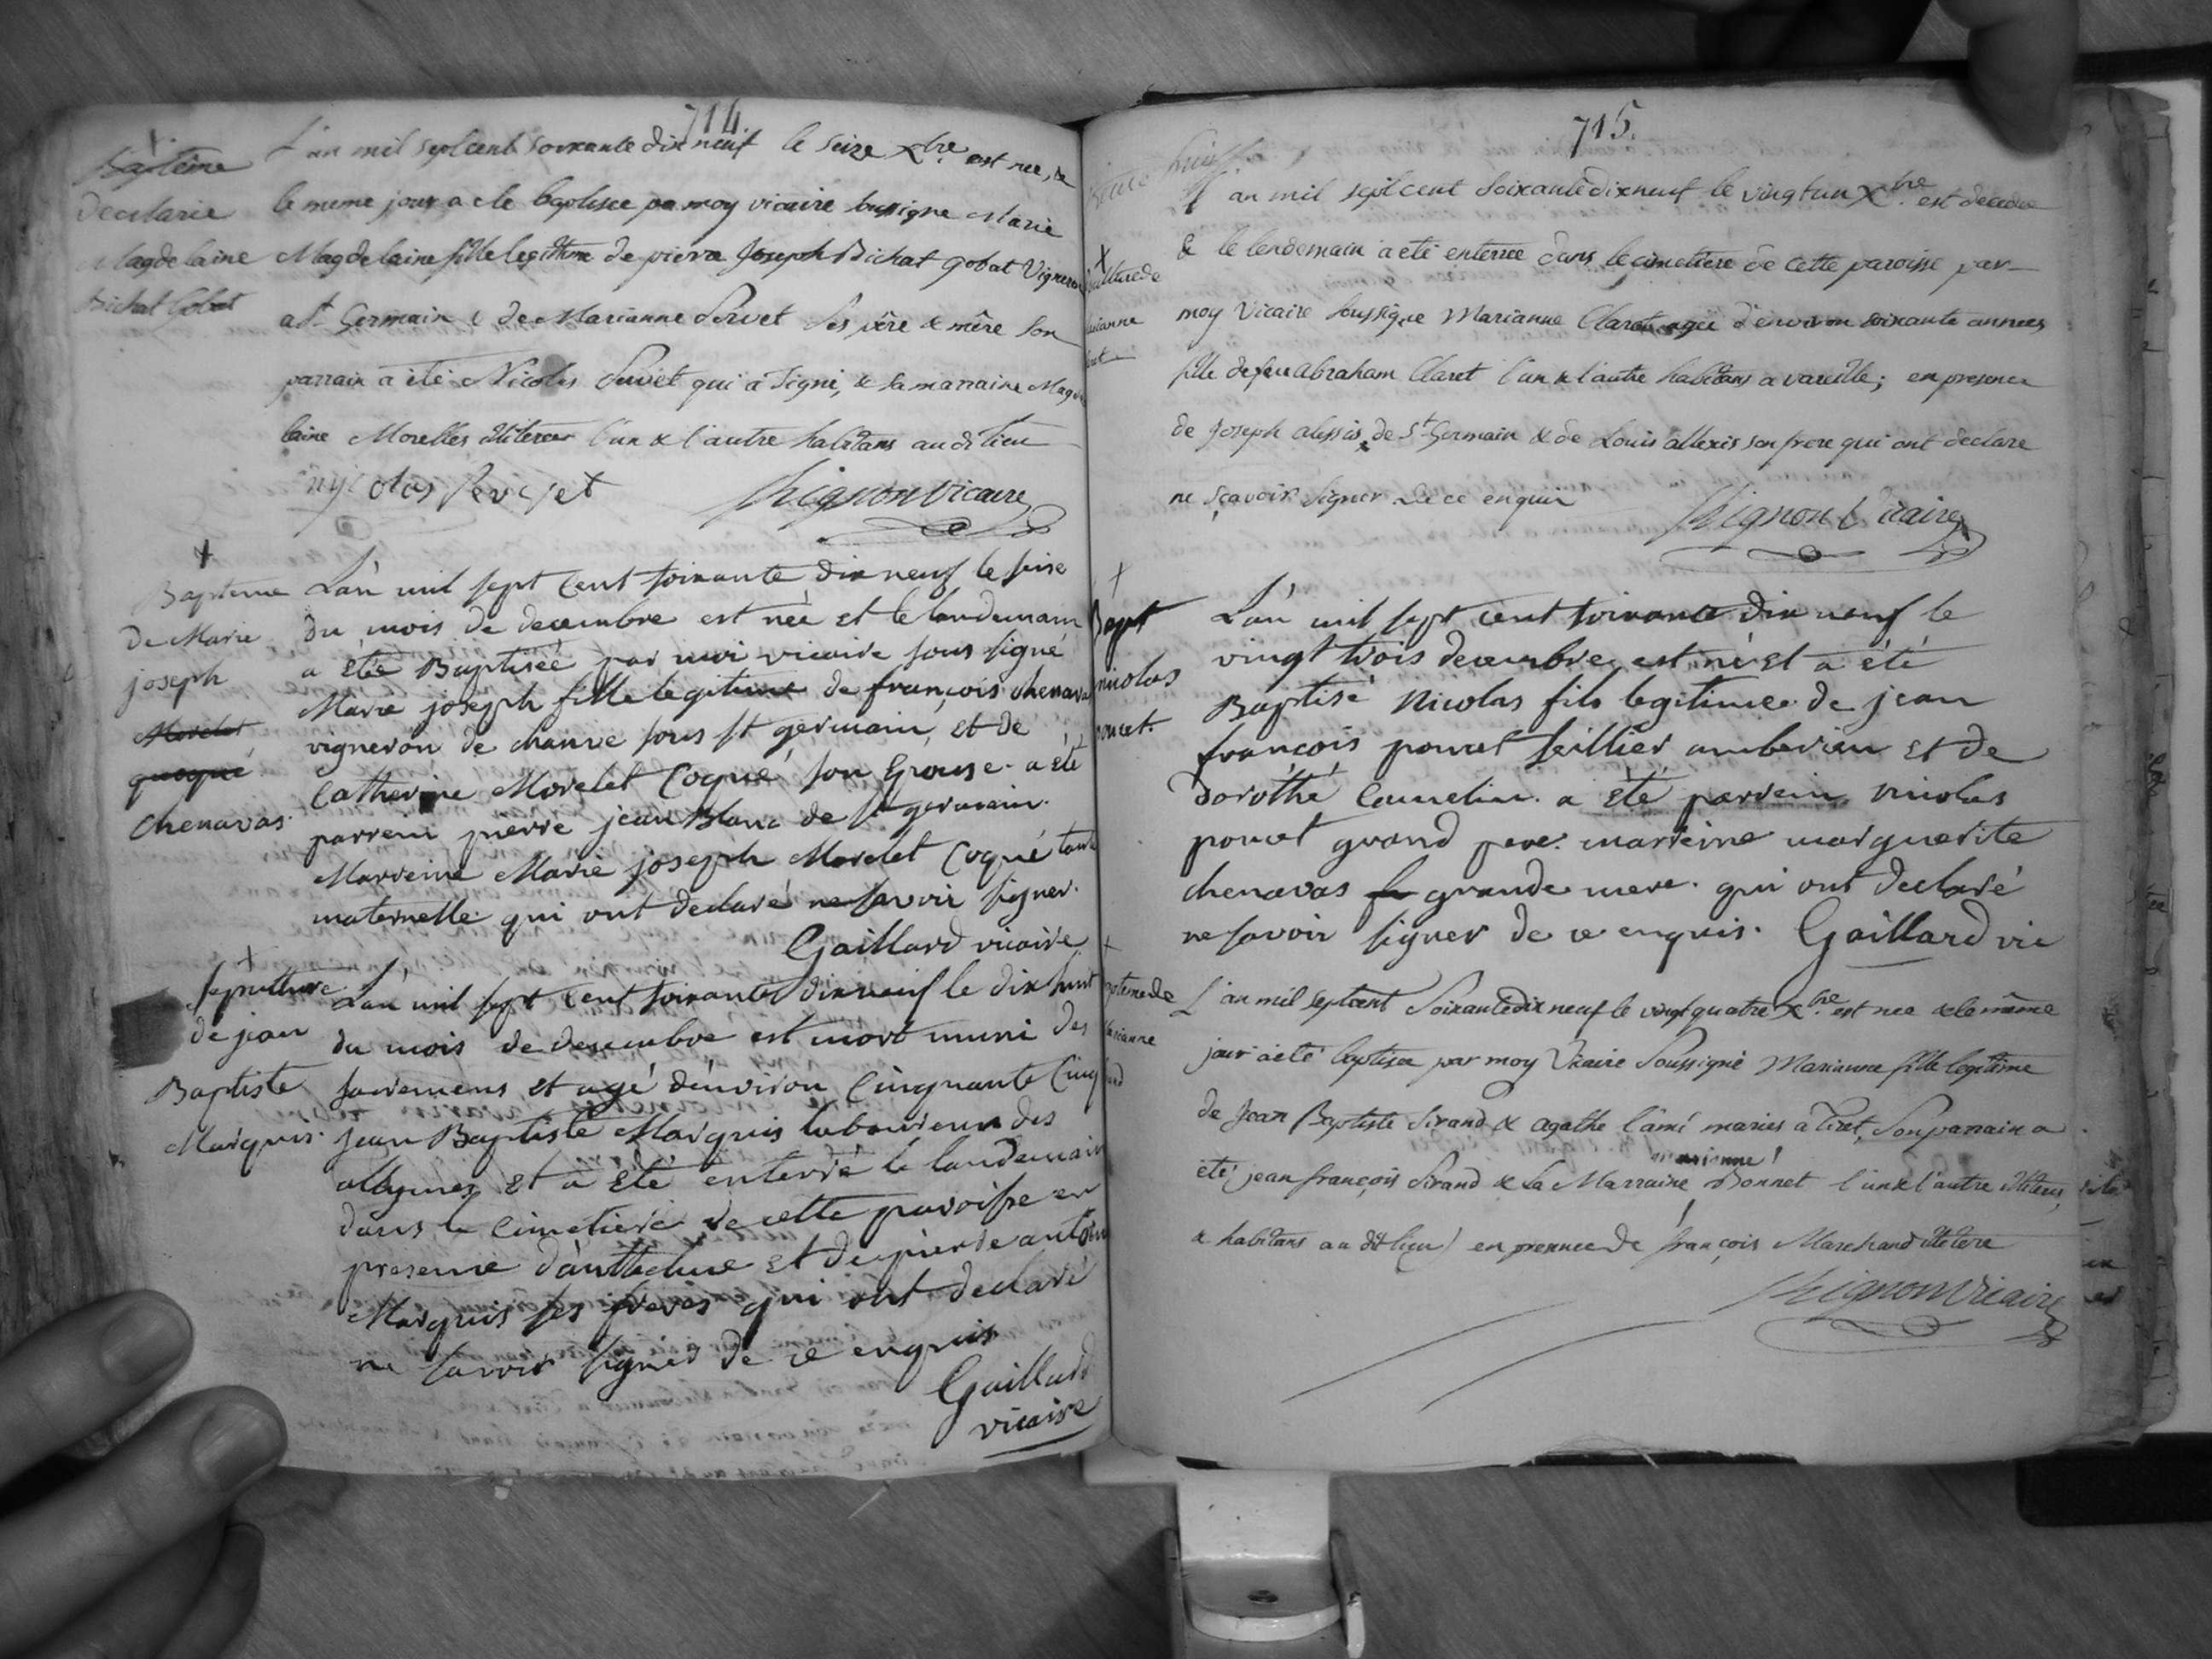 714.
Baptême
de Marie
Magdelaine
Bichat Gobat
L'an mil sept cent soixante dix neuf le seize Xbre est nee, &
le meme jour a ete baptisee par moy vicaire soussigne Marie
Magdelaine fille legitime de pierre Joseph Bichat gobat Vigneron
a St Germain & de Marianne Servet ses père & mère son
parrain a été Nicolas Servet qui a signé, & sa marraine Magde
laine Morellet illiteree l'un & l'autre habitans au dit lieu
nycolas servet
Chignon vicaire
Bapteme
de Marie
joseph
Morelet
quoqué
chenavas
L'an mil sept cent soixante dix neuf le seise
du mois de decembre est née et le landemain
a été Baptiséé par moi vicaire sous signé
Marie joseph fille legitime de françois chenavas
vigneron de chauve sous st germain, et de
Catherine Morelet Coqué son Epouse. a été
parrein pierre jean Blanc de st germain.
Marreine Marie joseph Morelet Coqué tante
maternelle qui ont declaré ne savoir signer.
Gaillard vicaire
sepulture
de jean
Baptiste
Marquis.
L'an mil sept cent soixante dix neuf le dix huit
du mois de desembre est mort muni des
sacremens et agé d'environ cinquante cinq
jean Baptiste Marquis laboureur des
allymes et a été enterré le landemain
dans le cimetiere de cette paroisse en
presence d'anthelme et de pierre antoine
Marquis ses freres qui ont declaré
ne savoir signer de ce enquis
Gaillard
vicaire
715.
L'an mil sept cent soixante dix neuf le vingt un Xbre est decedee
& le lendemain a eté enterree dans le cimetiere de cette paroisse par
moy Vicaire soussigne Marianne Claret agee d'environ soixante annees
fille de feu abraham Claret l'un & l'autre habitans a vareille; en presence
de Joseph alexis de St Germain & de Louis allexis son frere qui ont declare
ne sçavoir signer de ce enquis
Chignon Vicaire
Bapt
nicolas
poncet.
L'an mil sept cent soixante dix neuf le
vingt trois decembre est né et a été
Baptisé Nicolas fils legitime de jean
françois poncet seillier amberieu et de
dorothé Camelin. a été parrein nicolas
poncet grand pere. marreine marguerite
chenavas grande mere. qui ont declaré
ne savoir signer de ce enquis. Gaillard vic
L'an mil sept cent soixante dix neuf le vingt quatre Xbre est nee & le même
jour a eté baptisee par moy Vicaire soussigné Marianne fille legitime
de Jean Baptiste Sirand & agathe l'ami maries a Tiret, son parrain a
eté jean françois Sirand & la Marraine marianne Bonnet l'un & l'autre illiteres,
& habitans au dit lieu) en presence de françois Marchand illitere
Chignon Vicaire